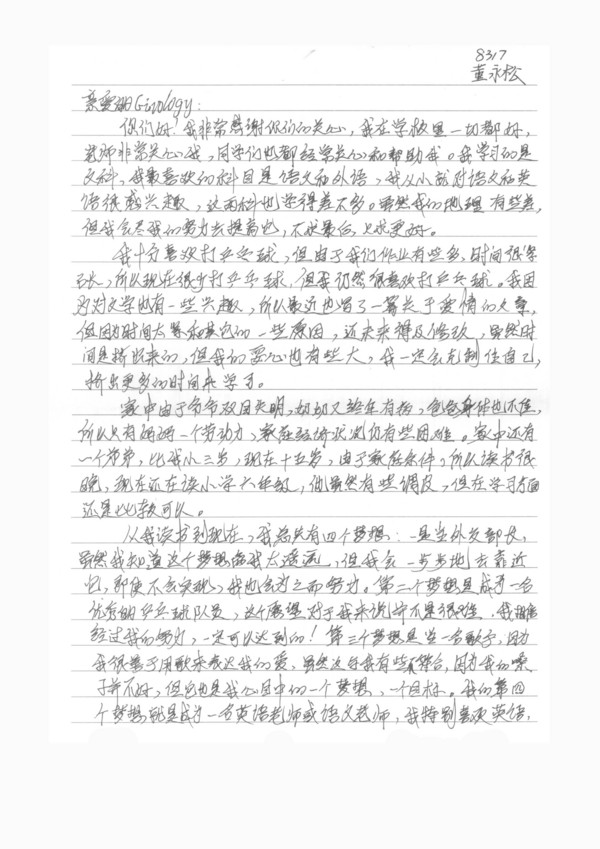 8317
董永松
亲爱的Givology:
你们好!我非常感谢你们的关心,我在学校里一切都好,
老师非常关心我,同学们也都经常关心和帮助我。我学习的是
文科,我最喜欢的科目是语文和外语,我从小就对语文和英
语很感兴趣,这两科也学得差不多。虽然我的地理有些差,
但我会尽我的努力去提高它,不求最后,只求更好。
我十分喜欢打乒乓球,但由于我们作业有些多,时间很紧
张,所以现在很少打乒乓球,但我仍然很喜欢打乒乓球。我因
为对文学也有一些兴趣,所以最近也写了一篇关于爱情的文章,
但因为时间太紧和其它的一些原因,还未来得及修改,虽然时
间是挤出来的,但我的恶心也有些大,我一定会克制住自己,
挤出更多的时间来学习。
家中由于爷爷双目失明,奶奶又终年有病,爸爸身体也不佳,
所以只有妈妈一个劳动力,家庭经济状况仍有些困难。家中还有
一个弟弟,比我小三岁,现在十五岁,由于家庭条件,所以读书很
晚,现在还在读小学六年级,他虽然有些调皮,但在学习方面
还是比较可以。
从我读书到现在,我总共有四个梦想:一是当外交部长,
虽然我知道这个梦想离我太遥远,但我会一步步地去靠近
它,即使不会实现,我也会为之而努力。第二个梦想是成为一名
优秀的乒乓球队员,这个愿望对于我来说也不是很难,我相信
经过我的努力,一定可以达到的!第三个梦想是当一名歌手,因为
我很善于用歌来表达我的爱,虽然这与我有些不符合,因为我的嗓
子并不好,但它也是我心目中的一个梦想,一个目标。我的第四
个梦想就是成为一名英语老师或语文老师,我特别喜欢英语,